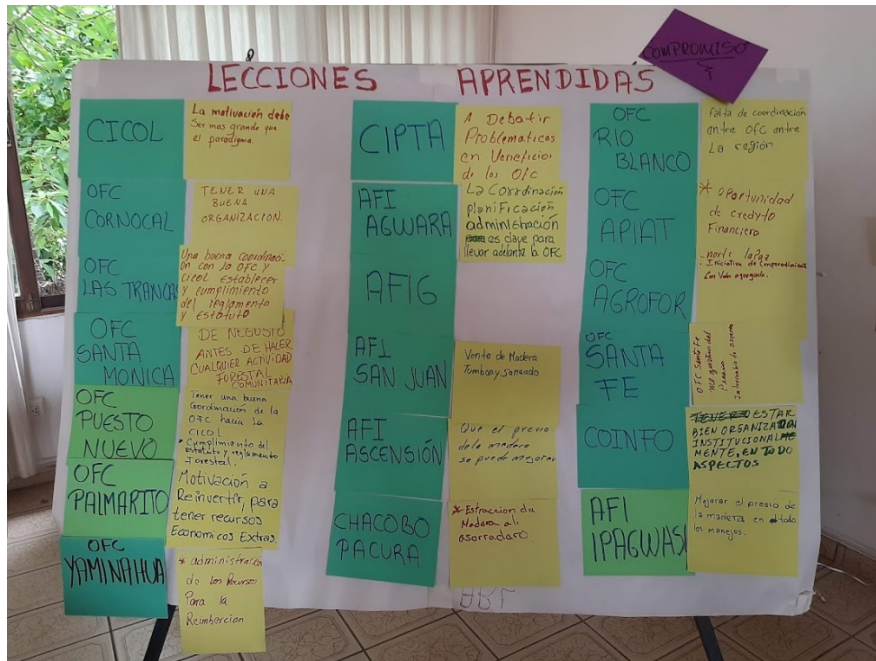 LECCIONES APRENDIDAS
COMPROMISO
CICOL
La motivación debe
Ser mas grande que
el paradigma.
OFC
CORNOCAL
TENER UNA
BUENA
ORGANIZACION.
OFC
LAS TRANCAS
Una buena coordinaci-
on con la OFC y
Cicol establecer
y cumplimiento
del reglamento
y Estatuto
OFC
SANTA
MONICA
DE NEGOSIO
ANTES DE HALER
CUALQUIER ACTIVIDAD
FORESTAL
COMUNITARIA
OFC
PUESTO
NUEVO
Tener una buena
Coordinación de la
OFC hacia la
CICOL
• Cumplimiento del
estatuto y reglamento
Forestal.
OFC
PALMARITO
Motivación a
Reinvertir, para
tener recursos
Economicos Extras.
OFC
YAMINAHUA
* administración
de los Recursos
Para la
CIPTA
A Debatir
Problematicas
en Veneficios
de los OFC
AFI
AGWARA
La Coordinación
planificación
administración
es clave para
llevar adelante la OFC
AFIG
AFI
SAN JUAN
Vente de Madera
Tumbon y
AFI
ASCENSIÓN
Que el precio
de la madera
se puede mejorar
CHACOBO
PACURA
* Estraccion de
Madera ali
asorradaro.
OFC
RIO
BLANCO
Falta de coordinación
entre OFC entre
La región
OFC
APIAT
* oportunidad
de credyto
Financiero
OFC
AGROFOR
- norte la paz
- Iniciativa de
con Valor agregado.
OFC
SANTA
FE
OFC Santa Fe
COINFO
ESTAR
BIEN ORGANIZADOS
INSTITUCIONALME
MENTE, EN TODO
ASPECTOS
AFI
IPAGWASU
Mejorar el presio de
la madera en todo
los manejos.